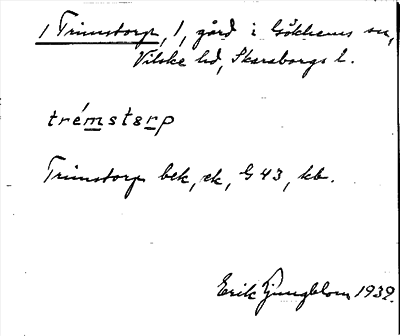 1 Trimstorp, 1, gård i Gökhems sn,
Vilske hd, Skaraborgs l.
trémstɐrp
Trimstorp bek, ek, G 43, kb.
Erik Ljungblom 1932.